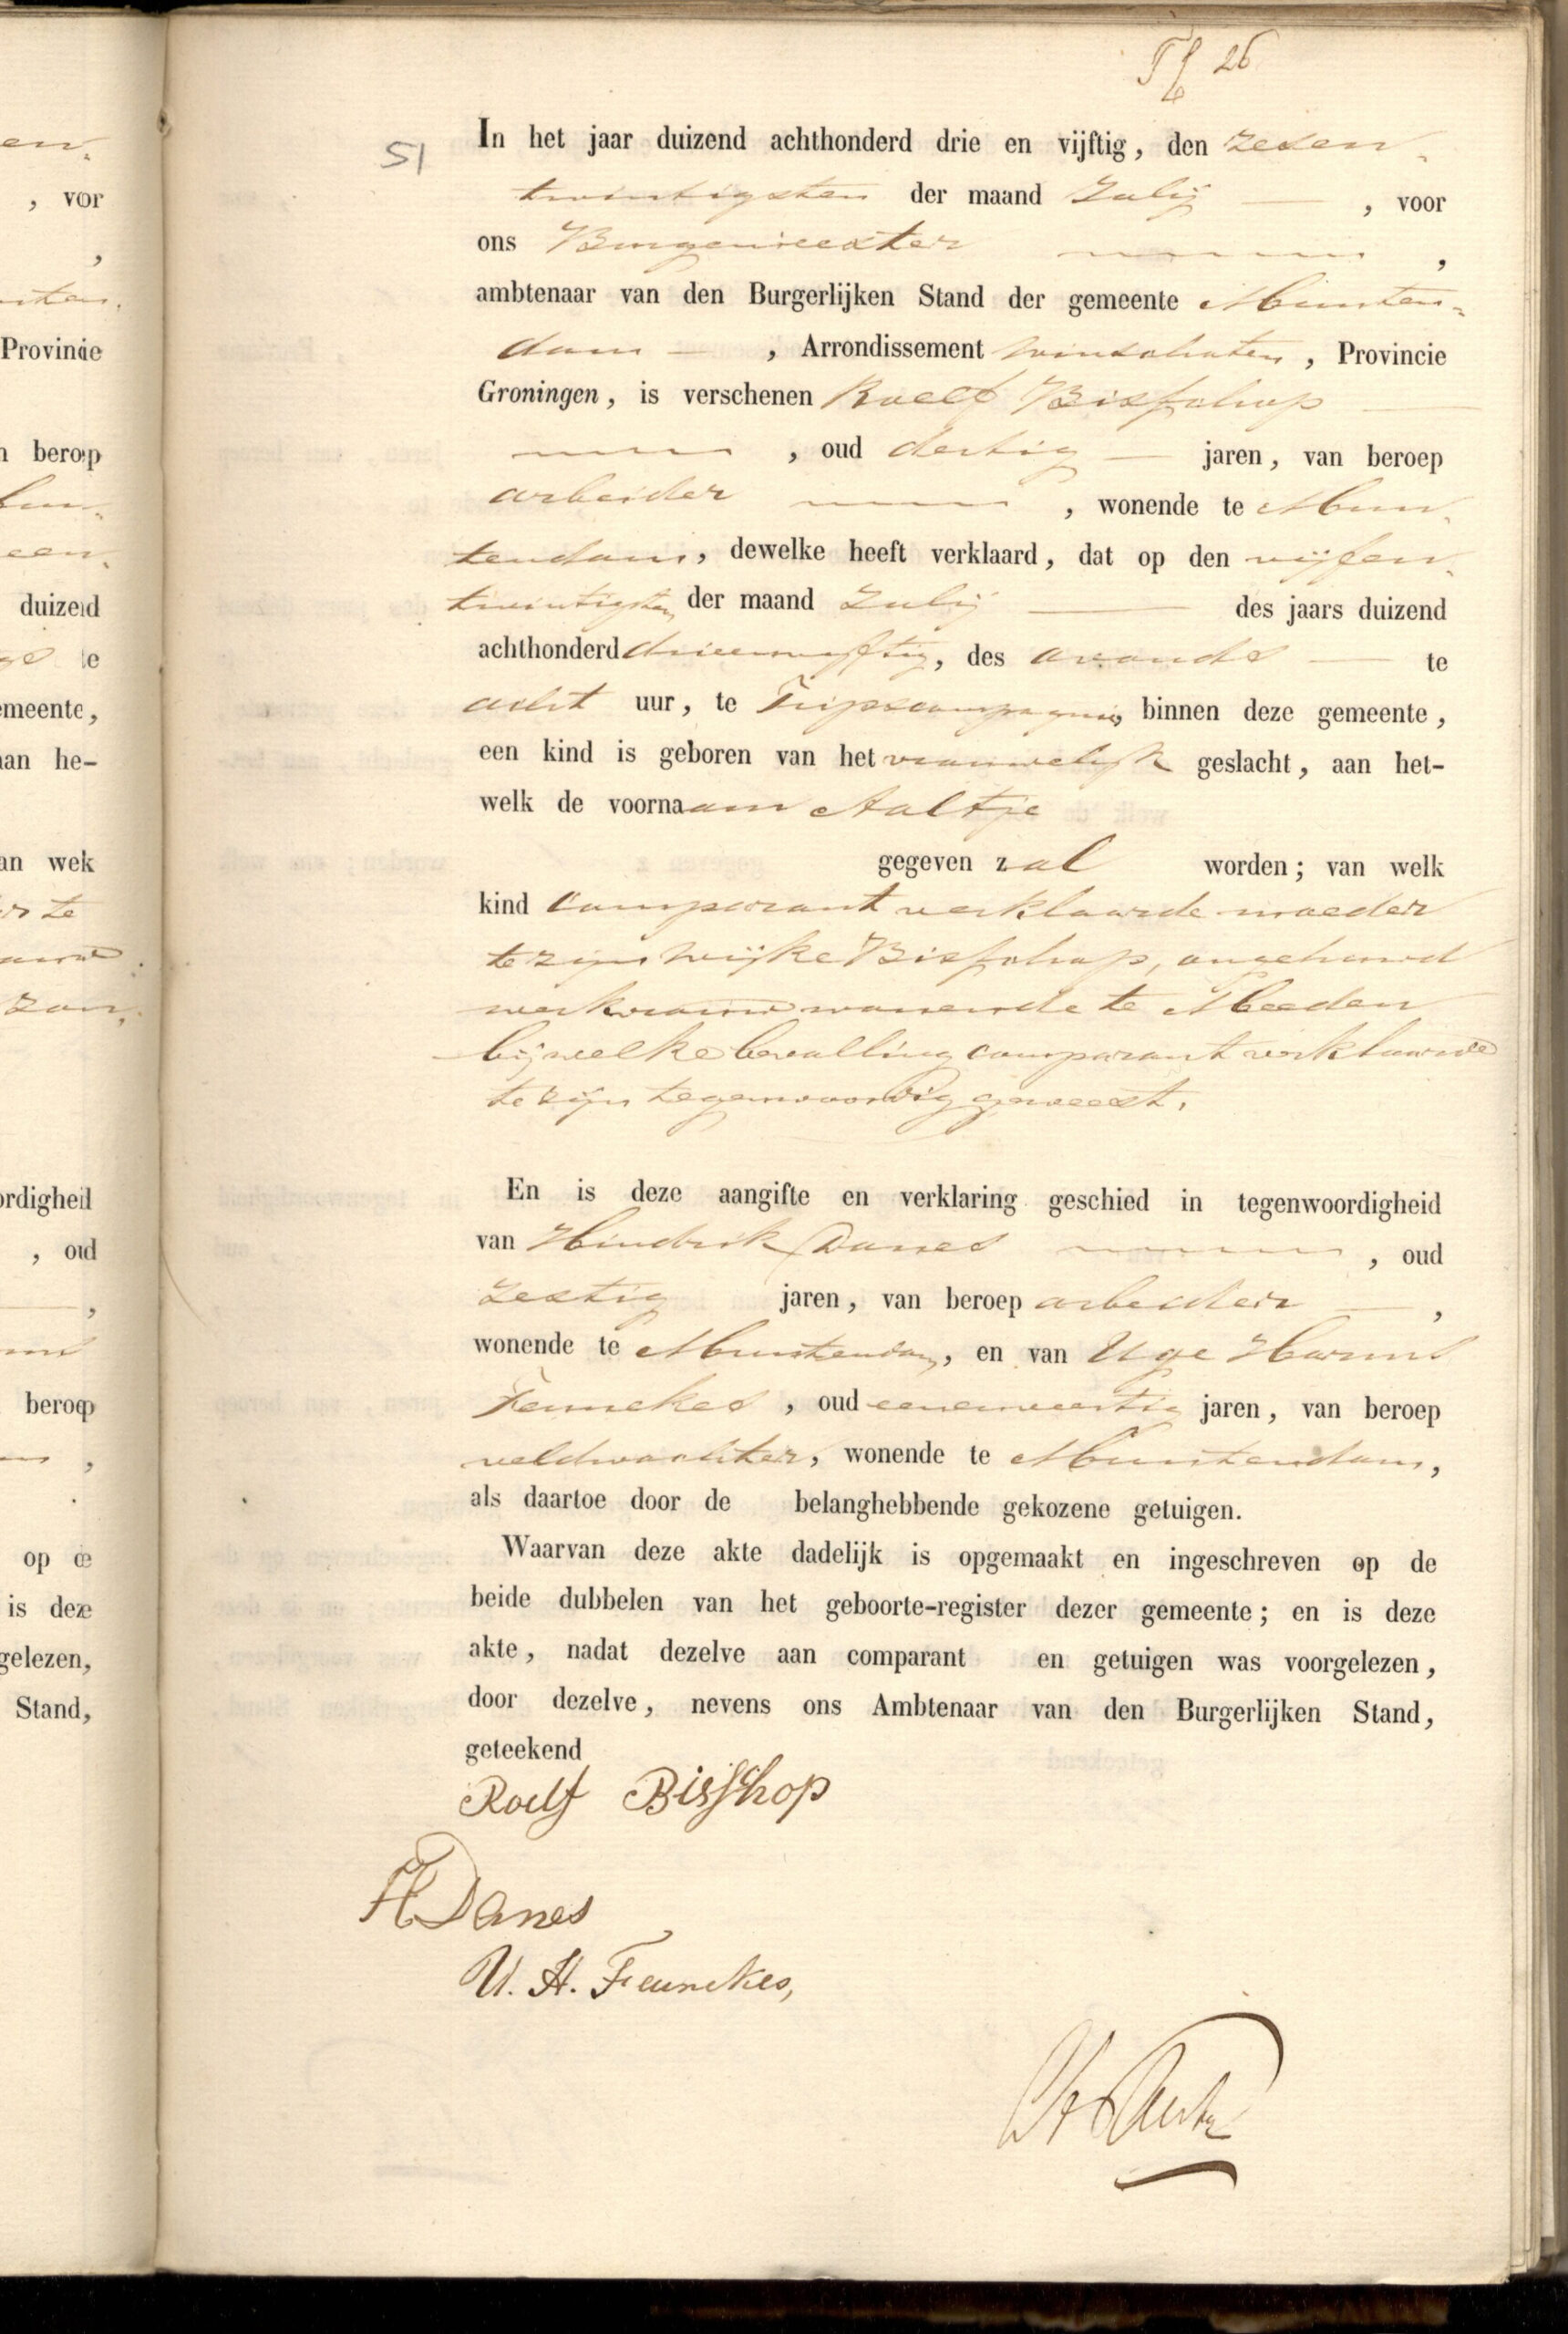 26
51
In het jaar duizend achthonderd drie en vijftig, den zesen-
twintigsten der maand Julij, voor
ons Burgemeester,
ambtenaar van den Burgerlijken Stand der gemeente Munten-
dam, Arrondissement Winschoten, Provincie
Groningen, is verschenen Roelf Bisschop
, oud dertig jaren, van beroep
arbeider, wonende te Mun-
tendam, dewelke heeft verklaard, dat op den vijfen-
twintigsten der maand Julij des jaars duizend
achthonderd drieenvijftig, des avonds te
acht uur, te Tripscompagnie, binnen deze gemeente,
een kind is geboren van het vrouwelijk geslacht, aan het-
welk de voornaam Aaltje
gegeven zal worden; van welk
kind comparant verklaarde moeder
te zijn Wijke Bisschop, ongehuwd
werkvrouw wonende te Meeden
bij welke bevalling comparant verklaarde
te zijn tegenwoordig geweest.
En is deze aangifte en verklaring geschied in tegenwoordigheid
van Hindrik Danes, oud
zestig jaren, van beroep arbeider,
wonende te Muntendam, en van Uge Harms
Feunekes, oud eenenveertig jaren, van beroep
veldwachter, wonende te Muntendam,
als daartoe door de belanghebbende gekozene getuigen.
Waarvan deze akte dadelijk is opgemaakt en ingeschreven op de
beide dubbelen van het geboorte-register dezer gemeente; en is deze
akte, nadat dezelve aan comparant en getuigen was voorgelezen,
door dezelve, nevens ons Ambtenaar van den Burgerlijken Stand,
geteekend
Roelf Bisschop
H Danes
U. H. Feunekes,